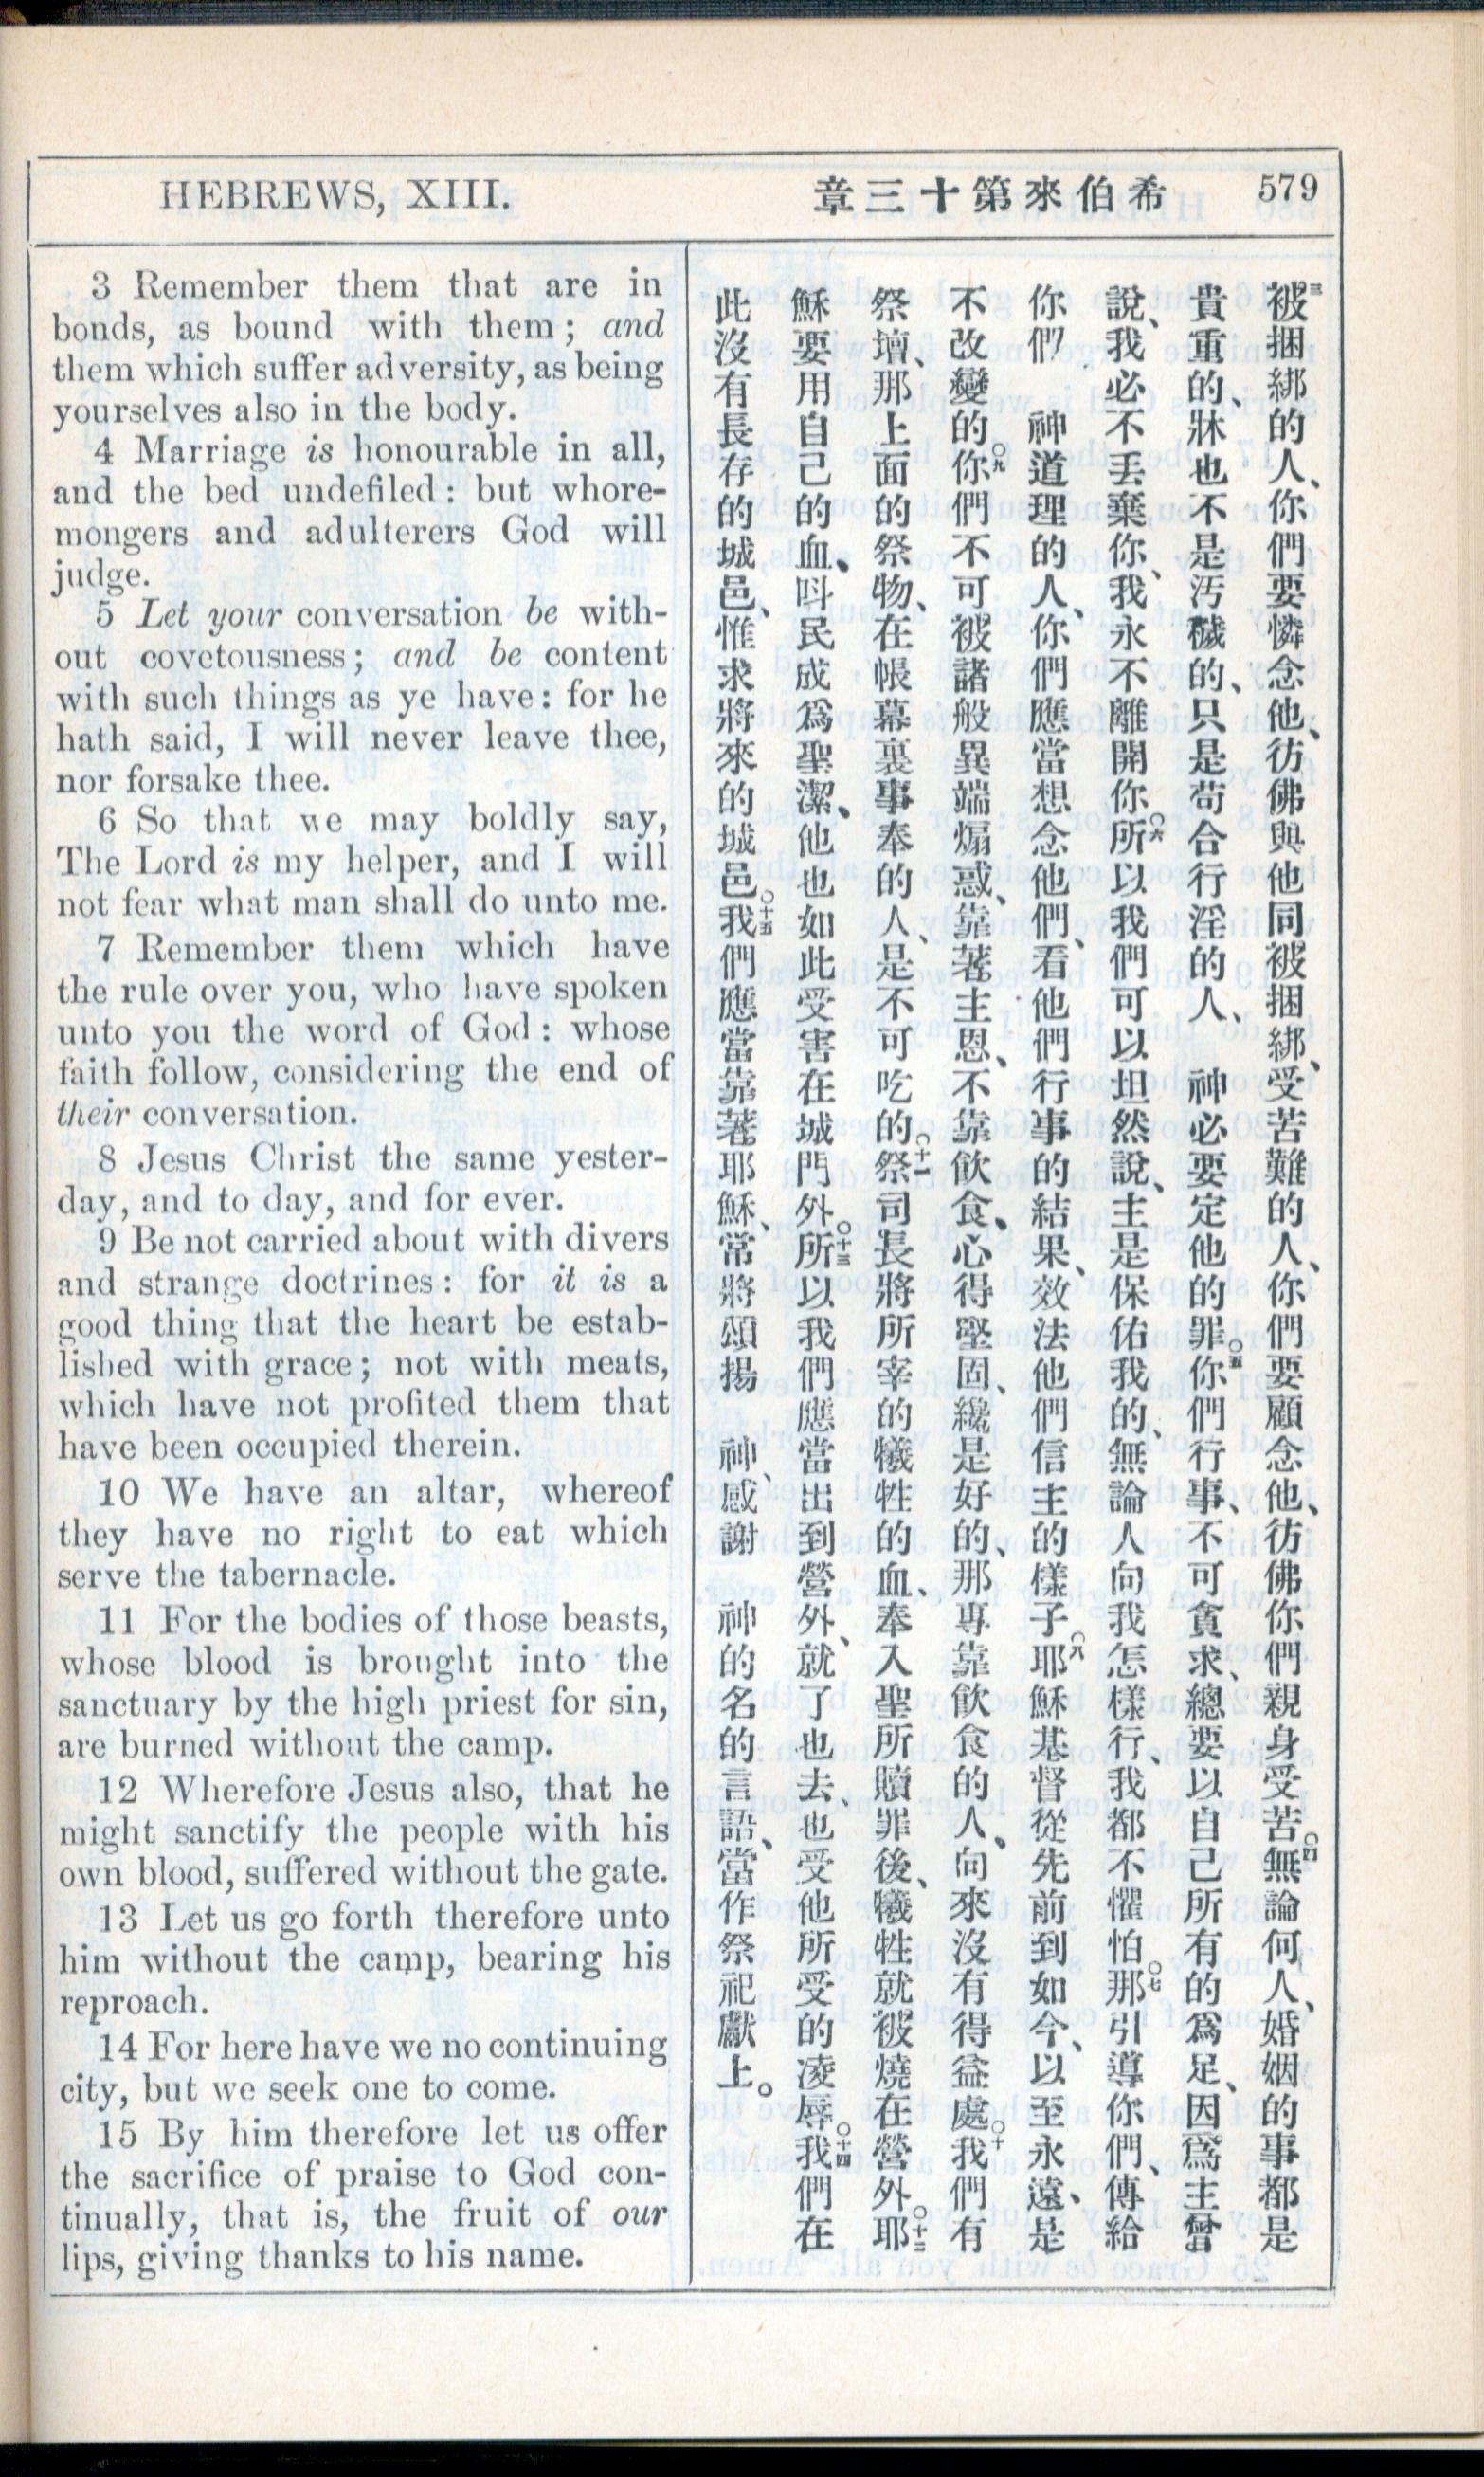 HEBREWS, XIII.
章三十第來伯希
579
3 Remember them that are in
bonds, as bound with them; and
them which suffer adversity, as being
yourselves also in the body.
4 Marriage is honourable in all,
and the bed undefiled: but whore-
mongers and adulterers God will
judge.
5 Let your conversation be with-
out covetousness; and be content
with such things as ye have: for he
hath said, I will never leave thee,
nor forsake thee.
6 So that we may boldly say,
The Lord is my helper, and I will
not fear what man shall do unto me.
7 Remember them which have
the rule over you, who have spoken
unto you the word of God: whose
faith follow, considering the end of
their conversation.
8 Jesus Christ the same yester-
day, and to day, and for ever.
9 Be not carried about with divers
and strange doctrines: for it is a
good thing that the heart be estab-
lished with grace; not with meats,
which have not profited them that
have been occupied therein.
10 We have an altar, whereof
they have no right to eat which
serve the tabernacle.
11 For the bodies of those beasts,
whose blood is brought into the
sanctuary by the high priest for sin,
are burned without the camp.
12 Wherefore Jesus also, that he
might sanctify the people with his
own blood, suffered without the gate.
13 Let us go forth therefore unto
him without the camp, bearing his
reproach.
14 For here have we no continuing
city, but we seek one to come.
15 By him therefore let us offer
the sacrifice of praise to God con-
tinually, that is, the fruit of our
lips, giving thanks to his name.
三被捆綁的人、你們要憐念他、彷佛與他同被捆綁、受苦難的人、你們要顧念他、彷佛你們親身受苦。四無論何人、婚姻的事都是
貴重的、牀也不是汚穢的、只是苟合行淫的人、 神必要定他的罪。五你們行事、不可貪求、總要以自己所有的爲足、因爲主曾
說、我必不丟棄你、我永不離開你。六所以我們可以坦然說、主是保佑我的、無論人向我怎樣行、我都不懼怕。七那引導你們、傳給
你們 神道理的人、你們應當想念他們、看他們行事的結果、效法他們信主的樣子。八耶穌基督從先前到如今、以至永遠、是
不改變的。九你們不可被諸般異端煽惑、靠著主恩、不靠飮食、心得堅固、纔是好的、那專靠飮食的人、向來沒有得益處。十我們有
祭壇、那上面的祭物、在帳幕裏事奉的人、是不可吃的。十一祭司長將所宰的犧牲的血、奉入聖所贖罪後、犧牲就被燒在營外。十二耶
穌要用自己的血、呌民成爲聖潔、他也如此受害在城門外。十三所以我們應當出到營外、就了也去也受他所受的凌辱。十四我們在
此沒有長存的城邑、惟求將來的城邑。十五我們應當靠著耶穌、常將頌揚 神、感謝 神的名的言語、當作祭祀獻上。